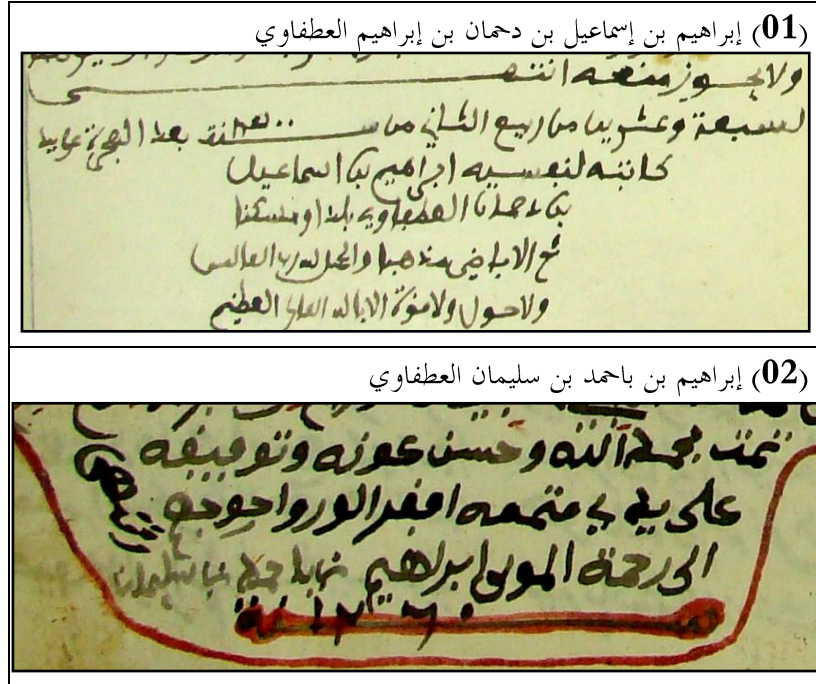 (01) إبراهيم بن إسماعيل بن دحمان بن إبراهيم العطفاوي
ولا يجوز منعه انتهى
لسبعة وعشرين من ربيع الثاني من سنة بعد الهجرة على يد
كاتبه لنفسه ابراهيم بن اسماعيل
بن دحمان العطفاوي بلدا ومسكنا
الاباضي مذهبا والحمد لله رب العالمين
ولا حول ولا قوة الا بالله العلي العظيم
(02) إبراهيم بن باحمد بن سليمان العطفاوي
تمت بحمد الله وحسن عونه وتوفيقه
على يد متممه افقر الورى واحوجه
الى رحمة المولى ابراهيم بن باحمد بن سليمان
سنة